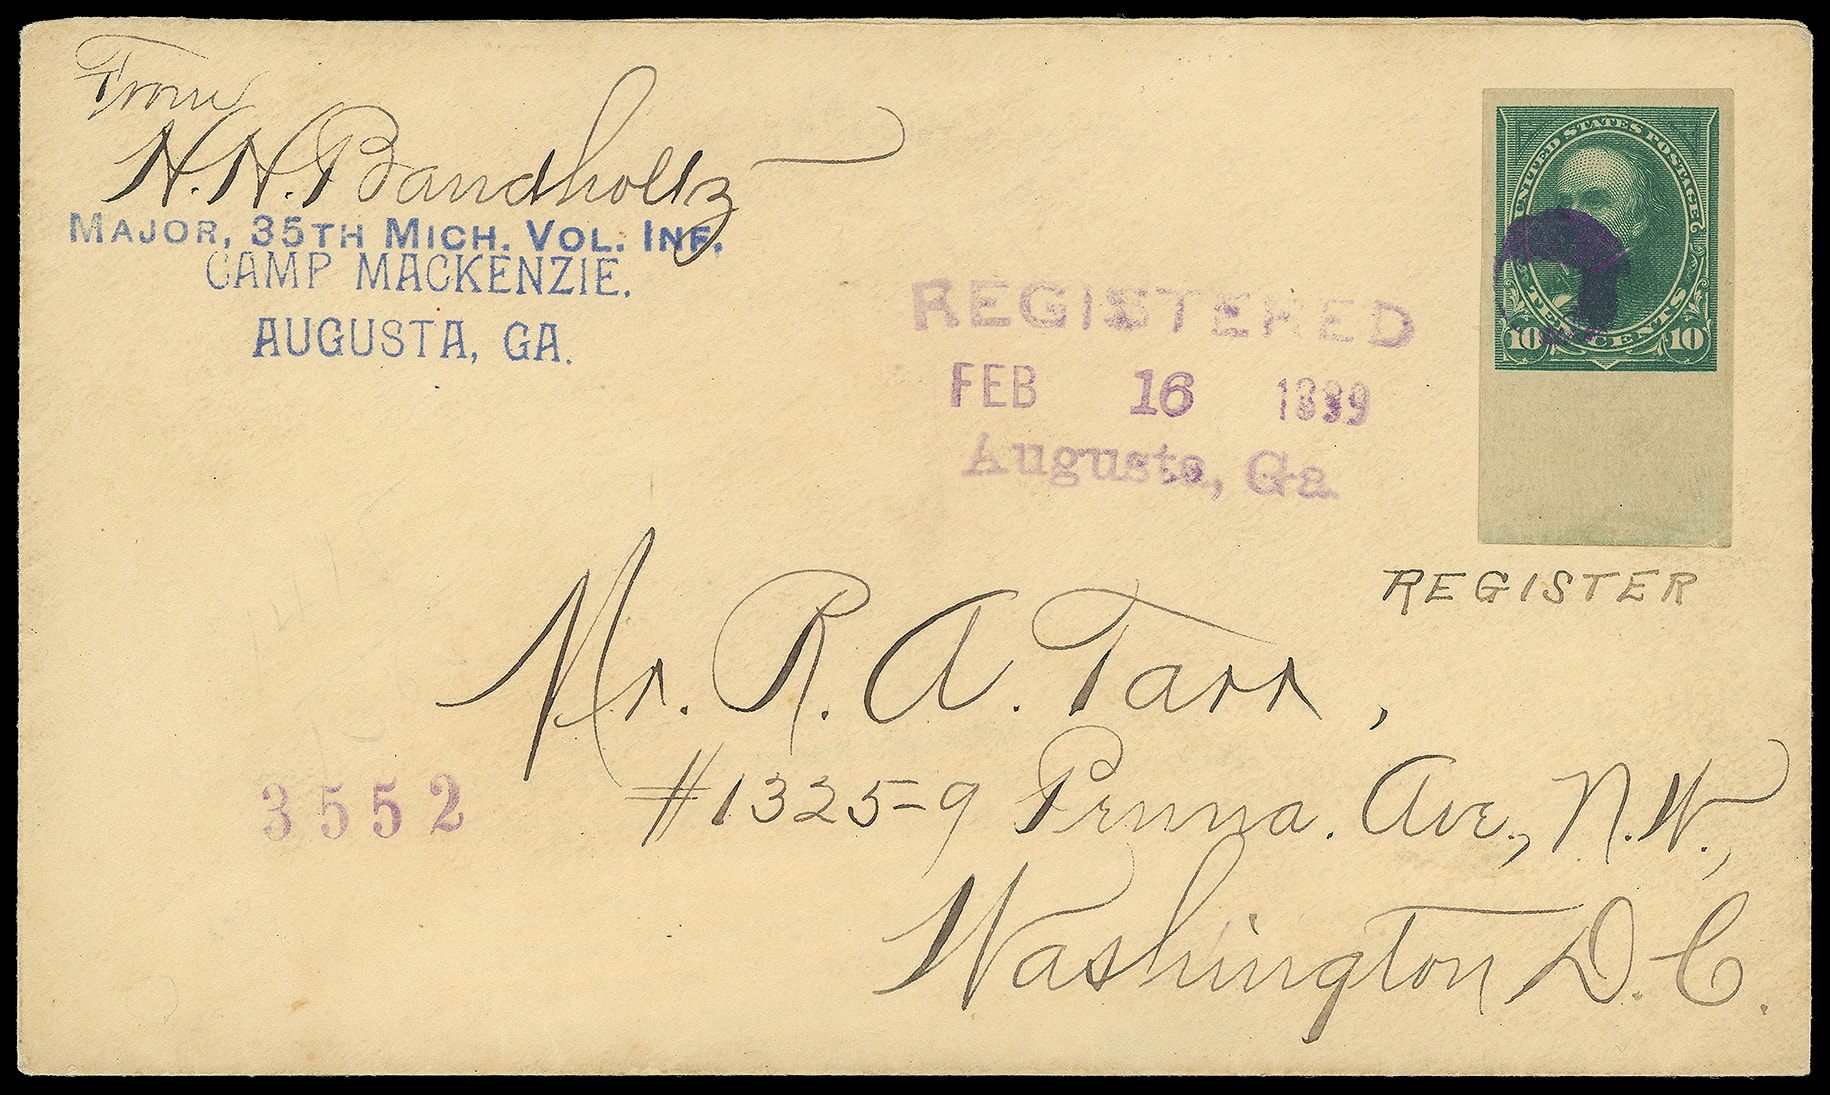 From
H. H. Bandholtz
MAJOR, 35TH MICH. VOL. INF.
CAMP MACKENZIE.
AUGUSTA, GA.
REGISTERED
FEB 16 1899
Augusta, Ga
UNITED STATES POSTAGE
TEN CENTS
10 10
REGISTER
Mr. R. A. Tarr,
#1325-9 Penna. Ave., N.W.,
Washington D.C.
3552